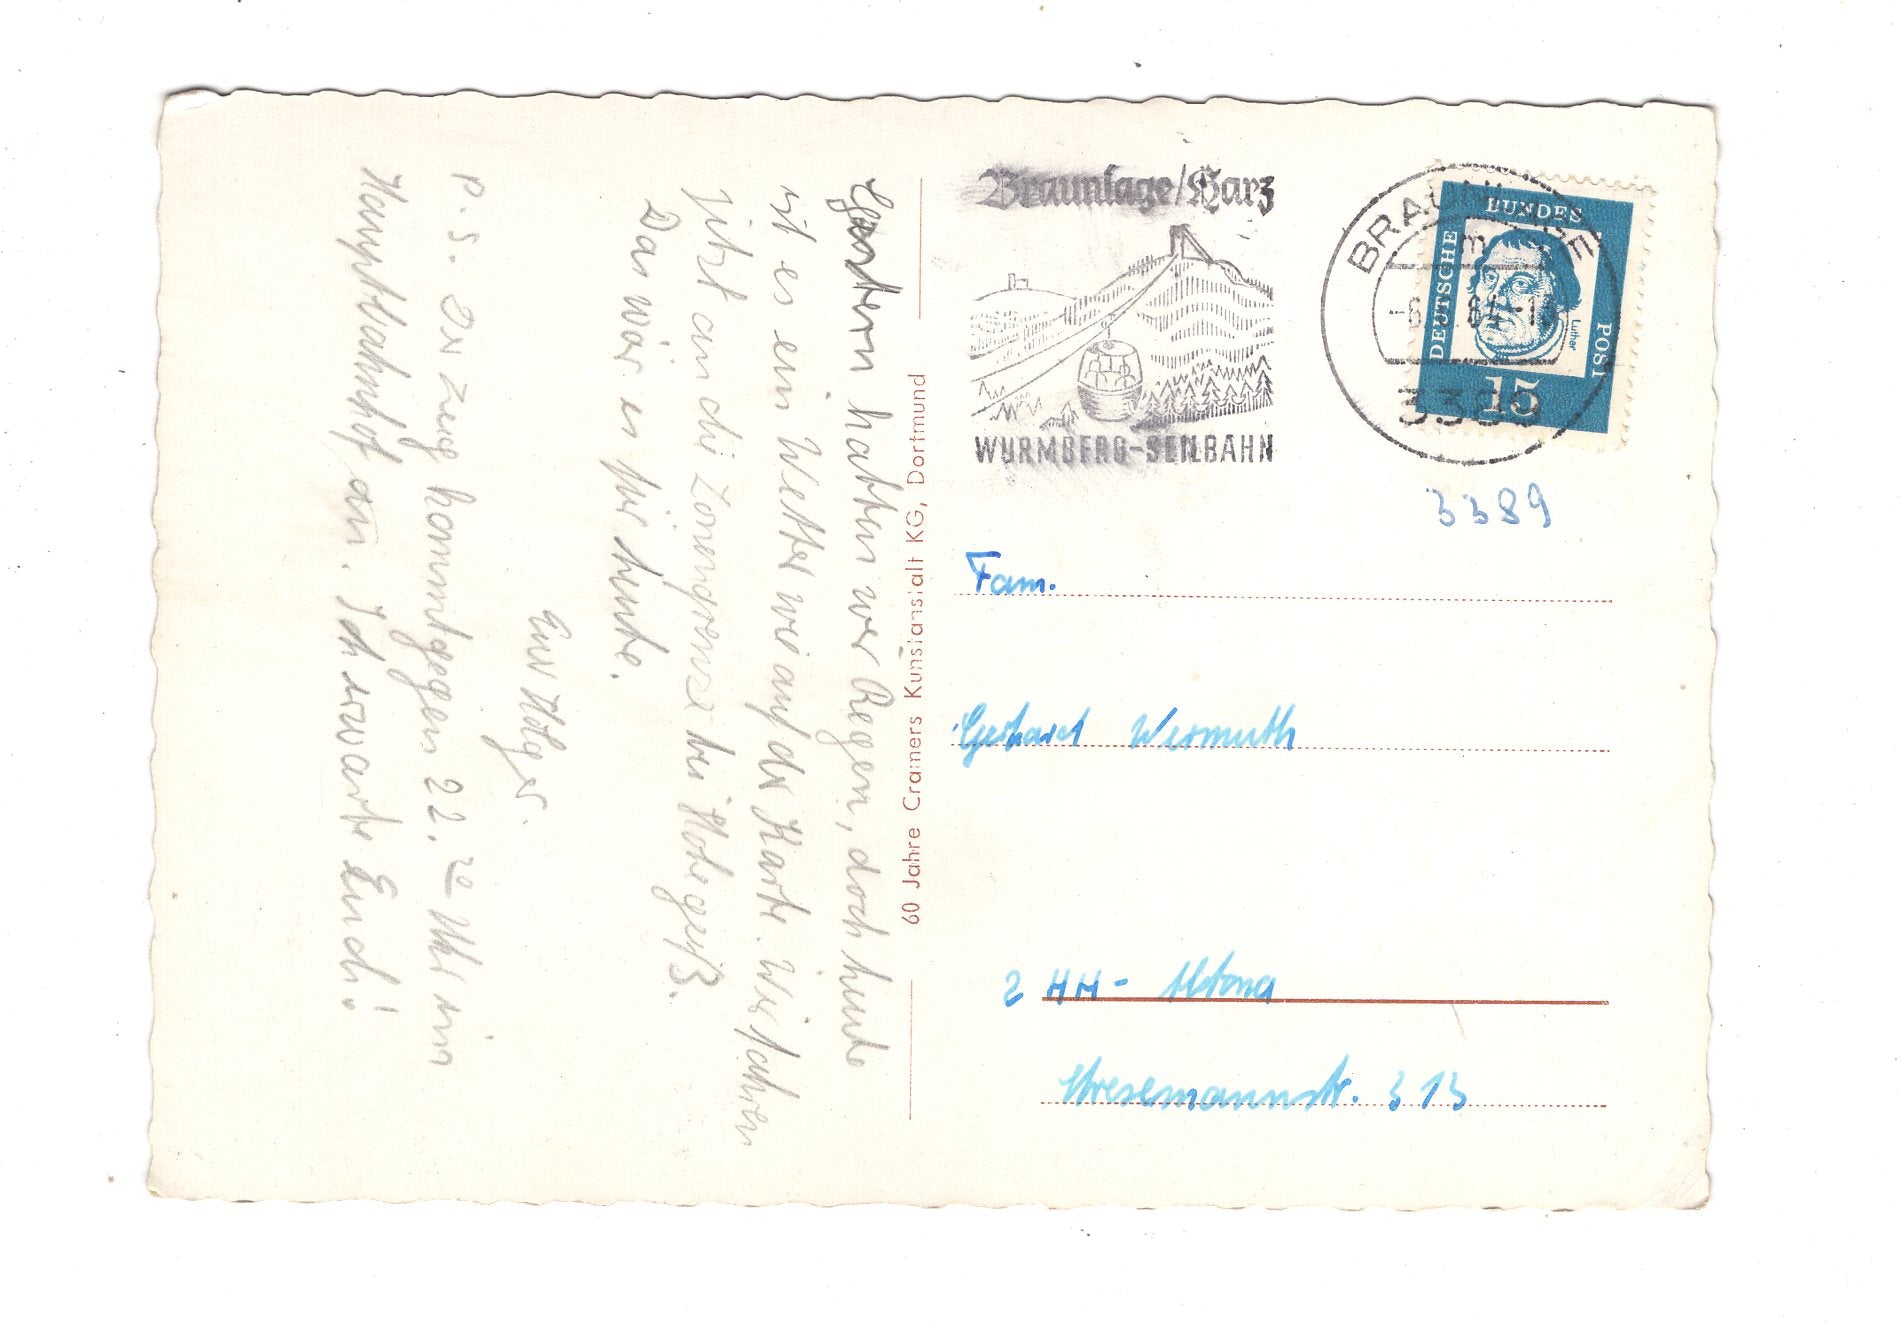 Gestern hatten wir Regen, doch heute
ist es ein Wetter wie auf der Karte. Wir fahren
jetzt an die Zonengrenze bei Hohegeiß.
Das wär es für heute.
Euer Holger.
P.S. Der Zug kommt gegen 22.20 Uhr im
Hauptbahnhof an. Ich erwarte Euch!
60 Jahre Cramers Kunstanstalt KG, Dortmund
Braunlage/Harz
WURMBERG-SEILBAHN
BRAUNLAGE
m
3389
DEUTSCHE
BUNDES
POST
Luther
15
3389
Fam.
Gerhard Wermuth
2 HH- Altona
Stresemannstr. 313